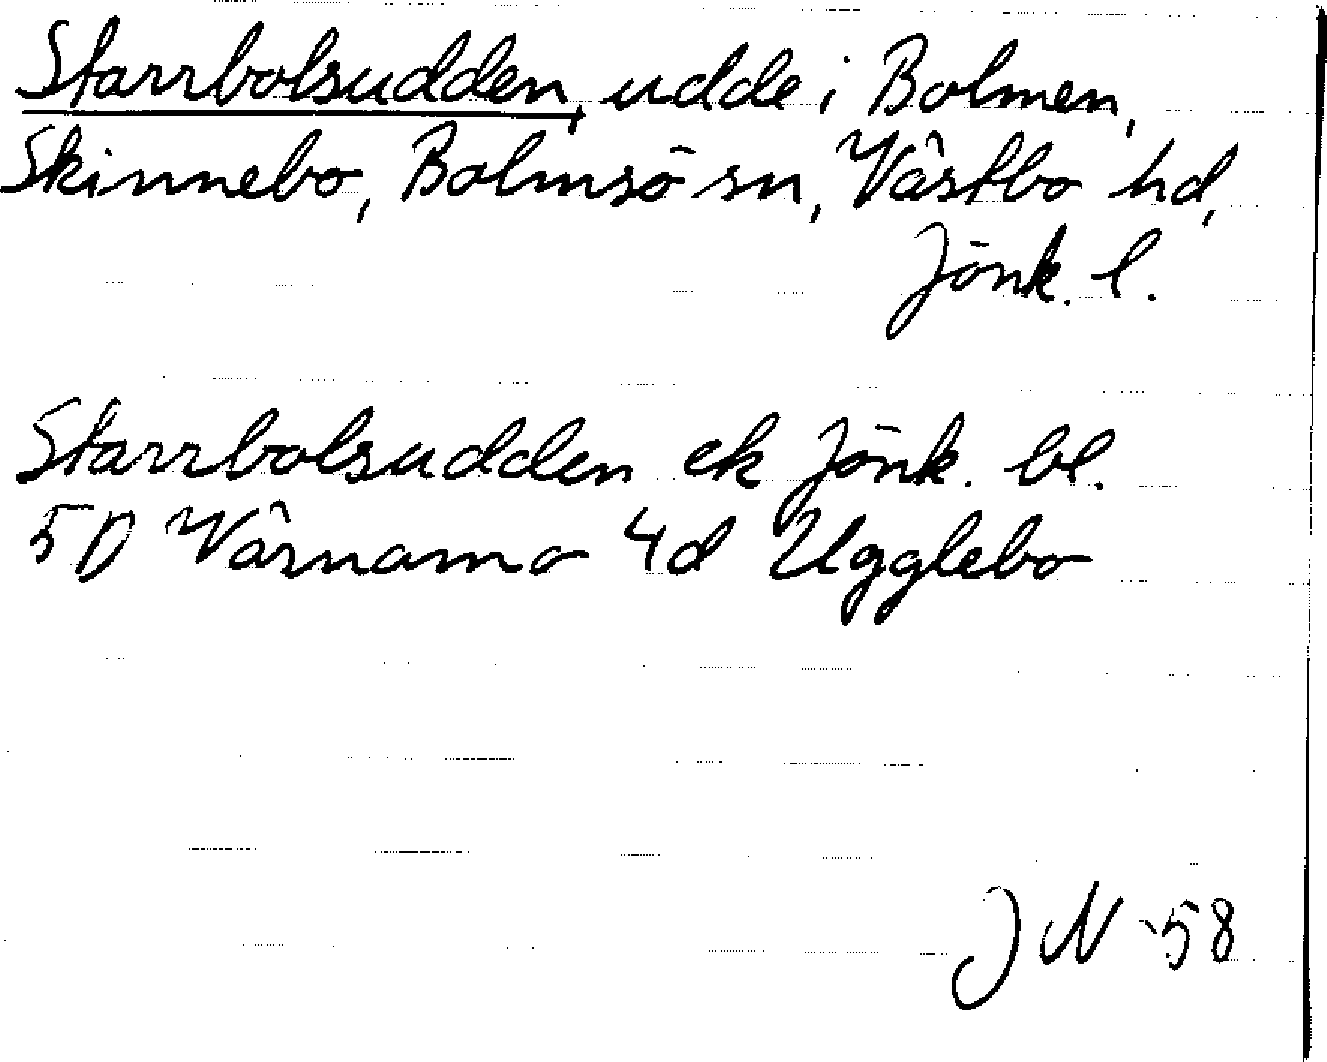 Starrbolsudden, udde i Bolmen,
Skinnebo, Bolmsö sn, Västbo hd,
Jönk. l.
Starrbolsudden ek Jönk. bl.
5D Värnamo 4d Ugglebo
JN -58